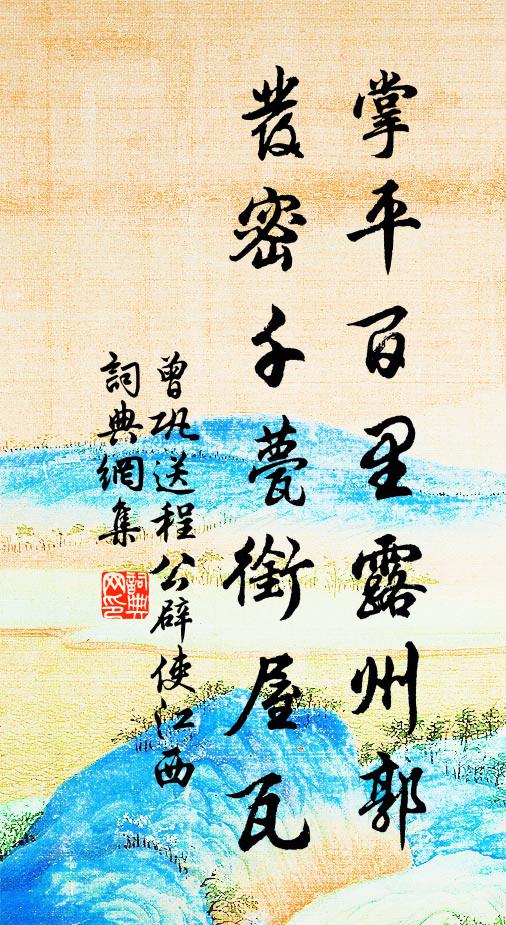 掌平百里露州郭
叢密千甍銜屋瓦
曾巩送程公辟使江西
詞典網集
詞典网印